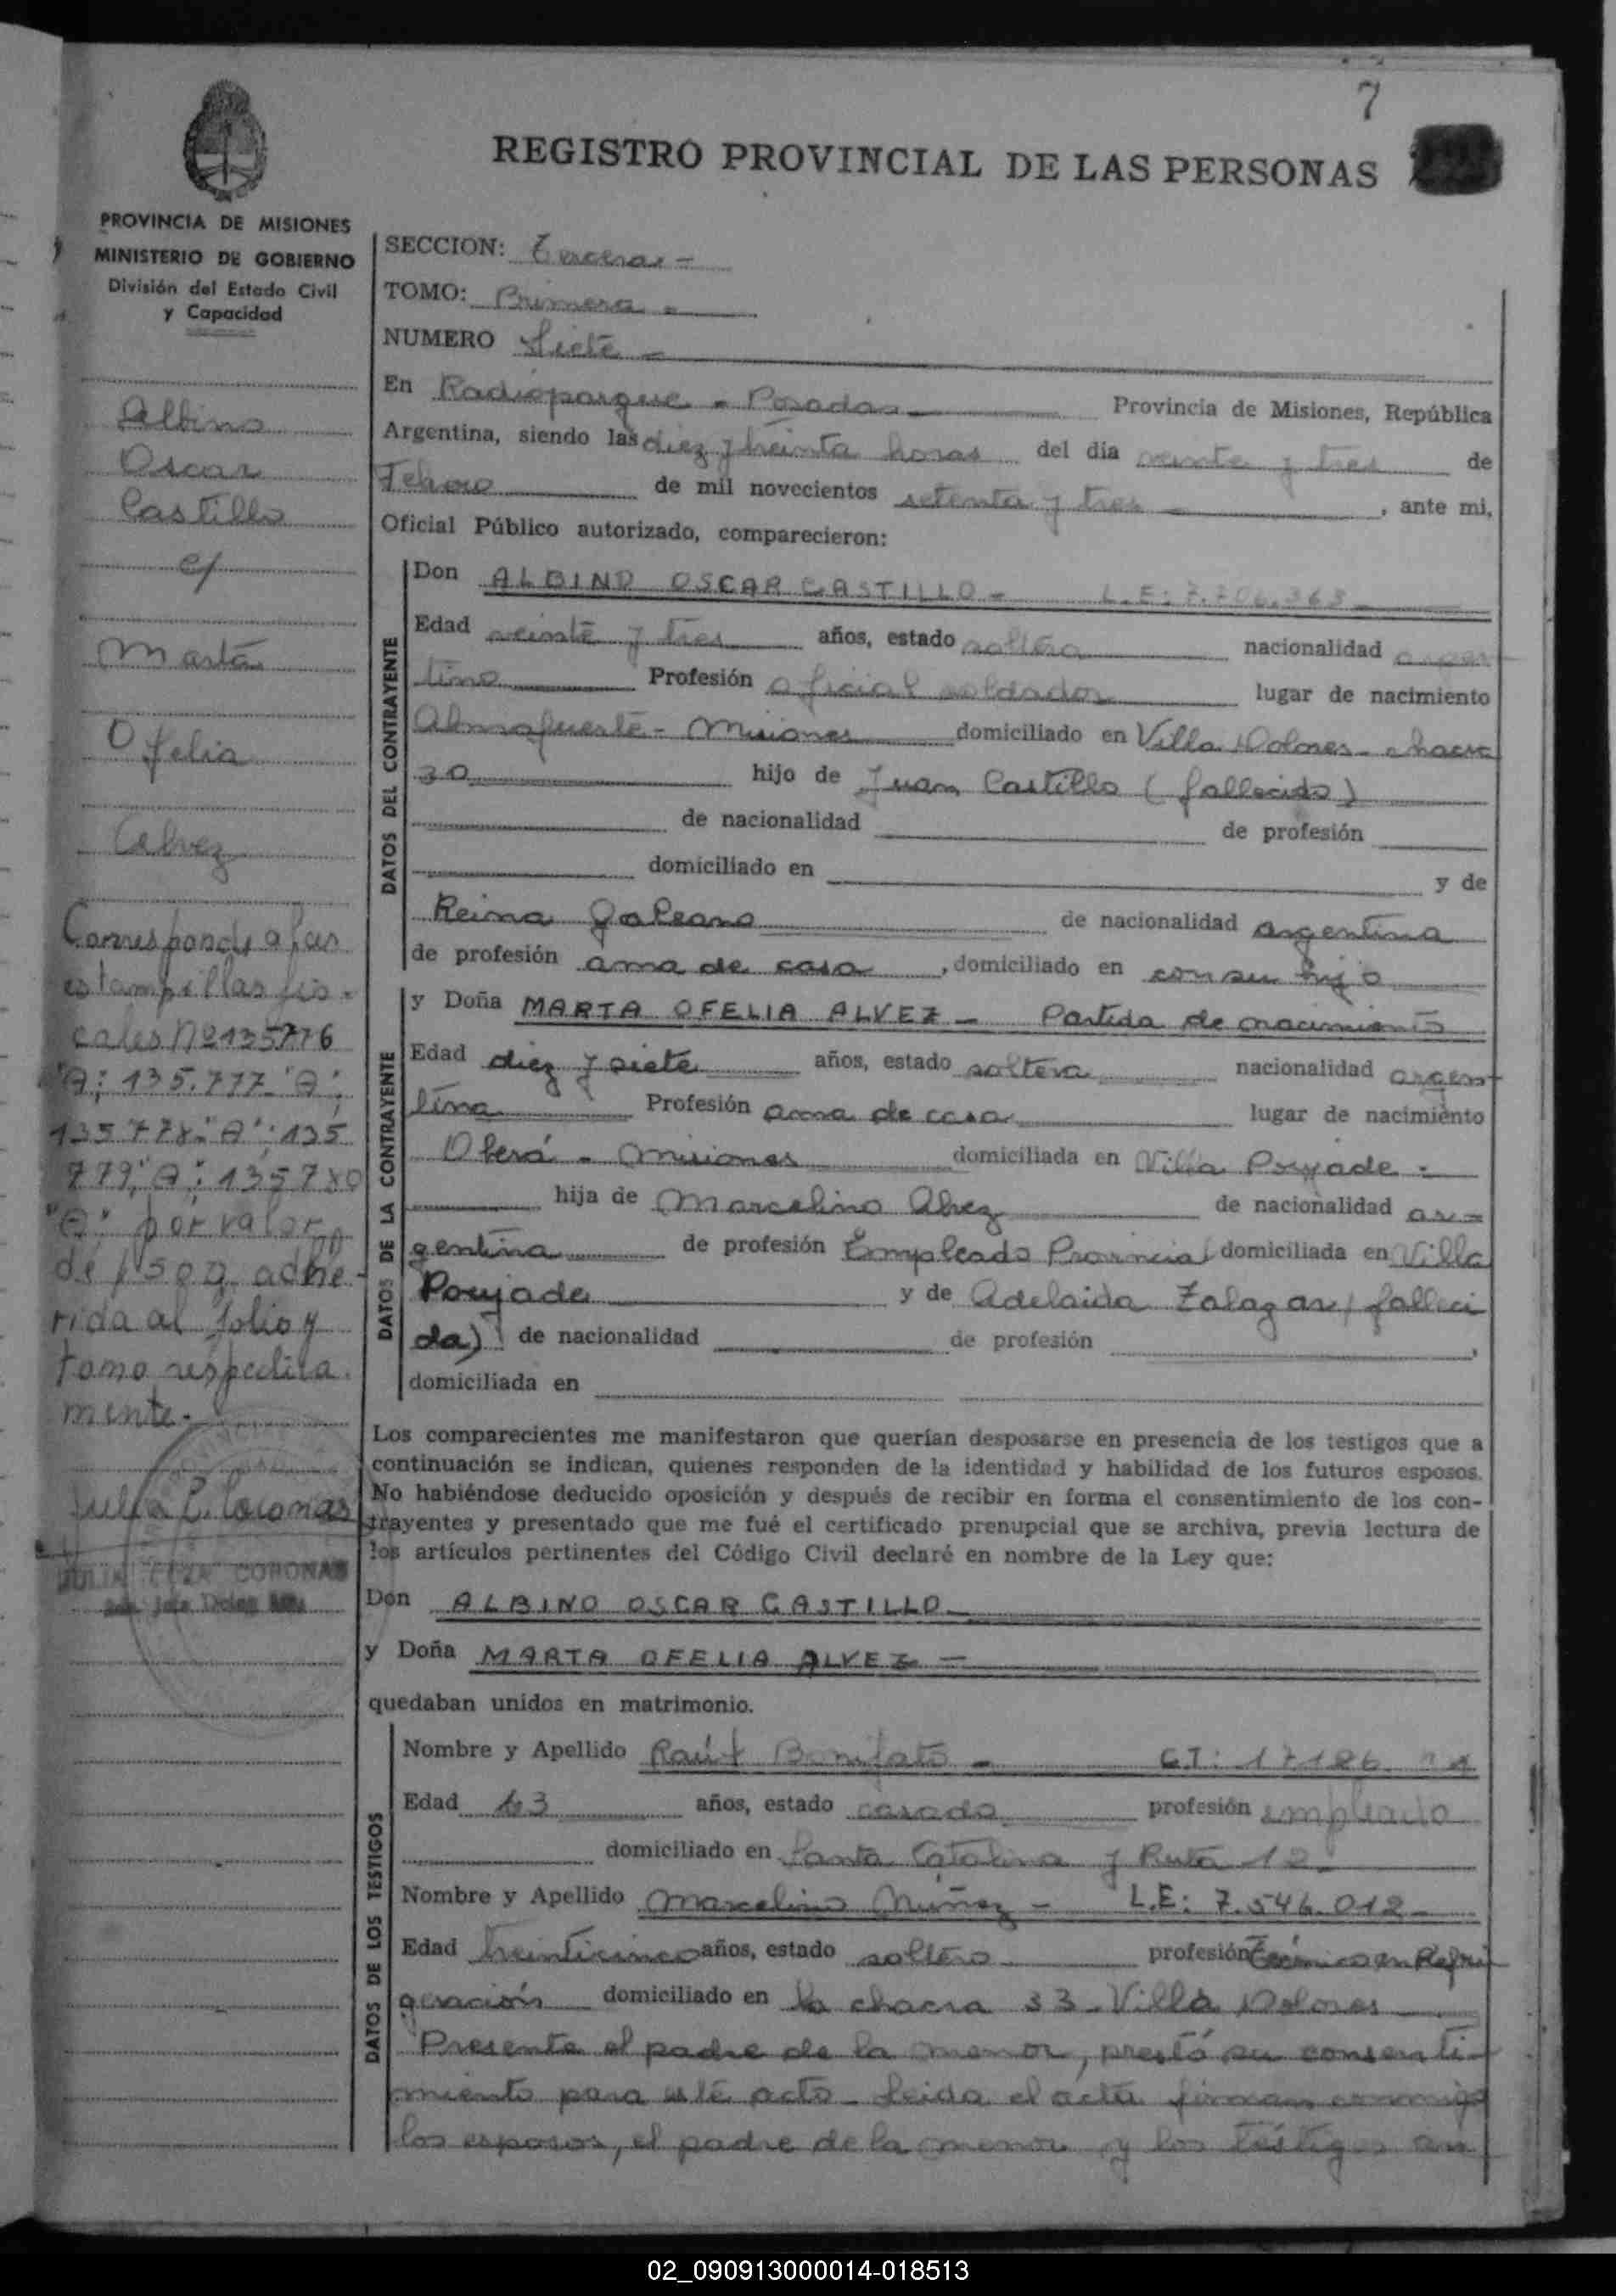 7
REGISTRO PROVINCIAL DE LAS PERSONAS
PROVINCIA DE MISIONES
MINISTERIO DE GOBIERNO
División del Estado Civil
y Capacidad
Albino
Oscar
Castillo
c/
Marta
Ofelia
Alvez
Corresponde a las
estampillas fis-
cales Nº 135776
"A"; 135.777 "A";
135778 "A"; 135
779 "A"; 135780
"A" por valor
de adhe-
rida al folio y
tomo respectiva
mente.-
Julia E. Coronas
CORONAS
SECCION: Tercera -
TOMO: Primero -
NUMERO Siete -
En Radioparque - Posadas Provincia de Misiones, República
Argentina, siendo las diez y treinta horas del día veinte y tres de
de mil novecientos setenta y tres - , ante mi,
Oficial Público autorizado, comparecieron:
DATOS DEL CONTRAYENTE
Don ALBINO OSCAR CASTILLO - L.E: 7.706.363
Edad veinte y tres años, estado soltero nacionalidad argen
tino Profesión oficial soldador lugar de nacimiento
Almafuerte - Misiones domiciliado en Villa Dolores - chacra
30 hijo de Juan Castillo (fallecido)
de nacionalidad de profesión
domiciliado en y de
Reina Galeano de nacionalidad argentina
de profesión ama de casa , domiciliado en con su hijo
DATOS DE LA CONTRAYENTE
y Doña MARTA OFELIA ALVEZ - Partida de nacimiento
Edad diez y siete años, estado soltera nacionalidad argen
tina Profesión ama de casa lugar de nacimiento
Oberá - Misiones domiciliada en Villa Poujade -
hija de Marcelino Alvez de nacionalidad ar-
gentina de profesión Empleado Provincial domiciliada en Villa
Poujade y de Adelaida Zalazar (falleci
da) de nacionalidad de profesión ,
domiciliada en
Los comparecientes me manifestaron que querían desposarse en presencia de los testigos que a
continuación se indican, quienes responden de la identidad y habilidad de los futuros esposos.
No habiéndose deducido oposición y después de recibir en forma el consentimiento de los con-
trayentes y presentado que me fué el certificado prenupcial que se archiva, previa lectura de
los artículos pertinentes del Código Civil declaré en nombre de la Ley que:
Don ALBINO OSCAR CASTILLO -
y Doña MARTA OFELIA ALVEZ -
quedaban unidos en matrimonio.
DATOS DE LOS TESTIGOS
Nombre y Apellido Raúl Bonifato - C.I: 17186
Edad 43 años, estado casado profesión empleado
domiciliado en Santa Catalina y Ruta 12
Nombre y Apellido Marcelino Núñez - L.E: 7.546.012 -
Edad treinticinco años, estado soltero profesión Técnico en Refri
geración domiciliado en la chacra 33 - Villa Dolores
Presente el padre de la menor, prestó su consenti-
miento para este acto - Leida el acta firman conmigo
los esposos, el padre de la menor y los testigos an
02_090913000014-018513